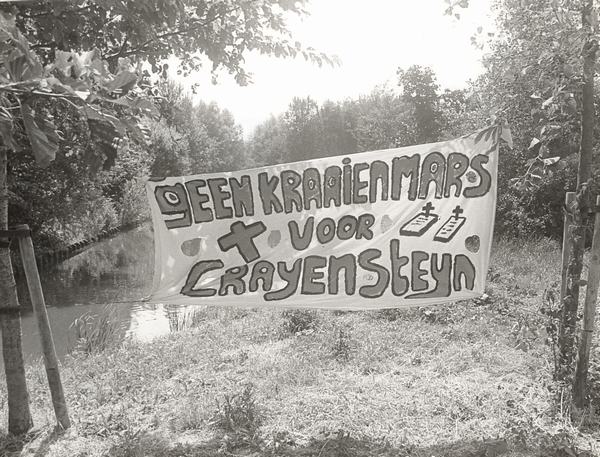 GEEN KRAAIENMARS
VOOR
CRAYENSTEYN